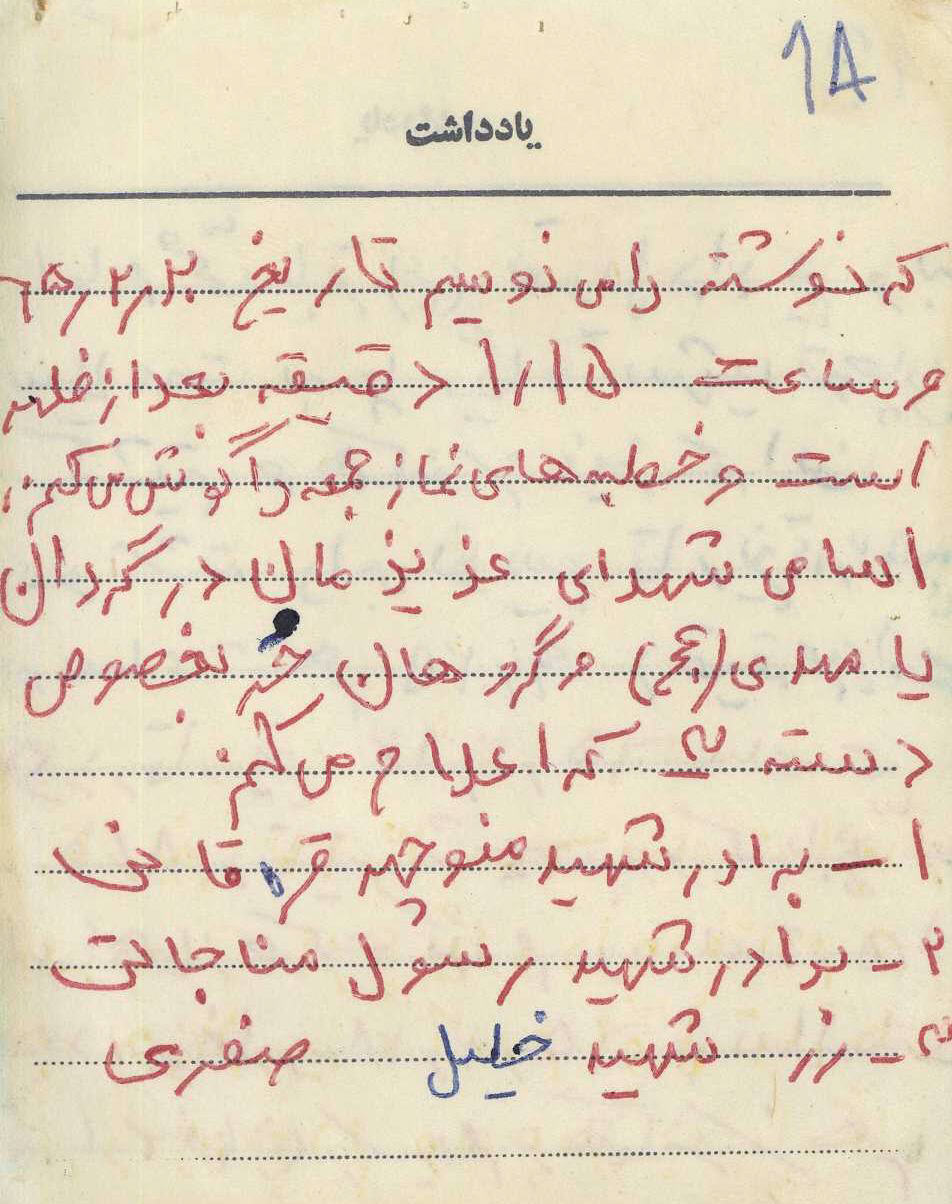 18
یادداشت
که نوشته را می نویسم تاریخ ۶۵٫۲٫۲۰
و ساعت ۱٫۱۵ دقیقه بعد از ظهر
است و خطبه های نماز جمعه را گوش می کنم.
اسامی شهدای عزیزمان در گردان
یا مهدی (عج) و گروهان حُر بخصوص
دسته ۳ که اعلام می کنم:
۱ - برادر شهید منوچهر قره قاضی
۲ - برادر شهید رسول مناجاتی
۳ - شهید خلیل صفری